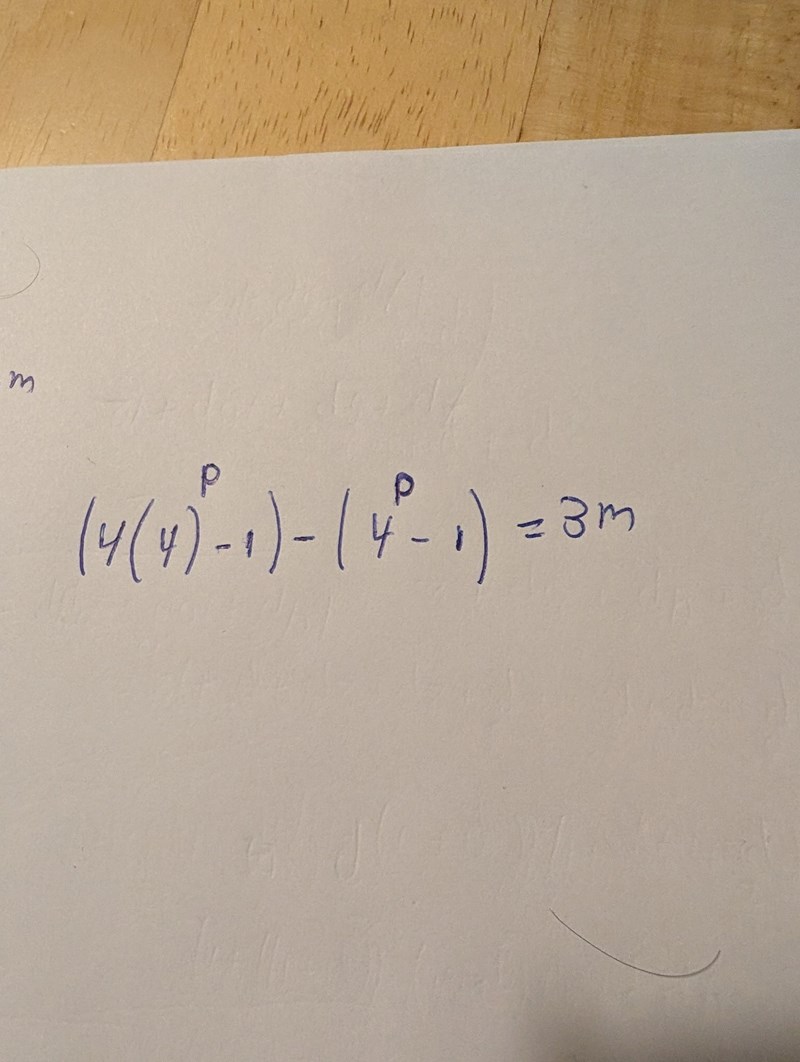 m
(4(4)ᵖ-1)-(4ᵖ-1)=3m